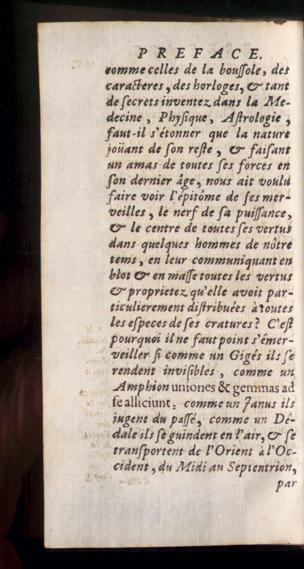 PREFACE.
comme celles de la boussole, des
caracteres, des horloges, & tant
de secrets inventez dans la Me-
decine, Physique, Astrologie,
faut-il s'étonner que la nature
joüant de son reste, & faisant
un amas de toutes ses forces en
son dernier âge, nous ait voulu
faire voir l'epitôme de ses mer-
veilles, le nerf de sa puissance,
& le centre de toutes ses vertus
dans quelques hommes de nôtre
tems, en leur communiquant en
blot & en masse toutes les vertus
& proprietez qu'elle avoit par-
ticulierement distribuées à toutes
les especes de ses cratures? C'est
pourquoi il ne faut point s'émer-
veiller si comme un Gigés ils se
rendent invisibles, comme un
Amphion uniones & gemmas ad
se alliciunt, comme un Janus ils
jugent du passé, comme un Dé-
dale ils se guindent en l'air, & se
transportent de l'Orient à l'Oc-
cident, du Midi au Septentrion,
par